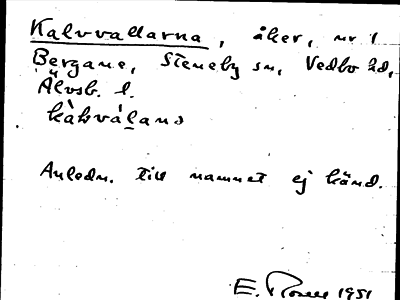 Kalvvallarna, åker, nr 1
Bergane, Steneby sn, Vedbo hd,
Älvsb. l.
Anledn. till namnet ej känd.
E. 1951